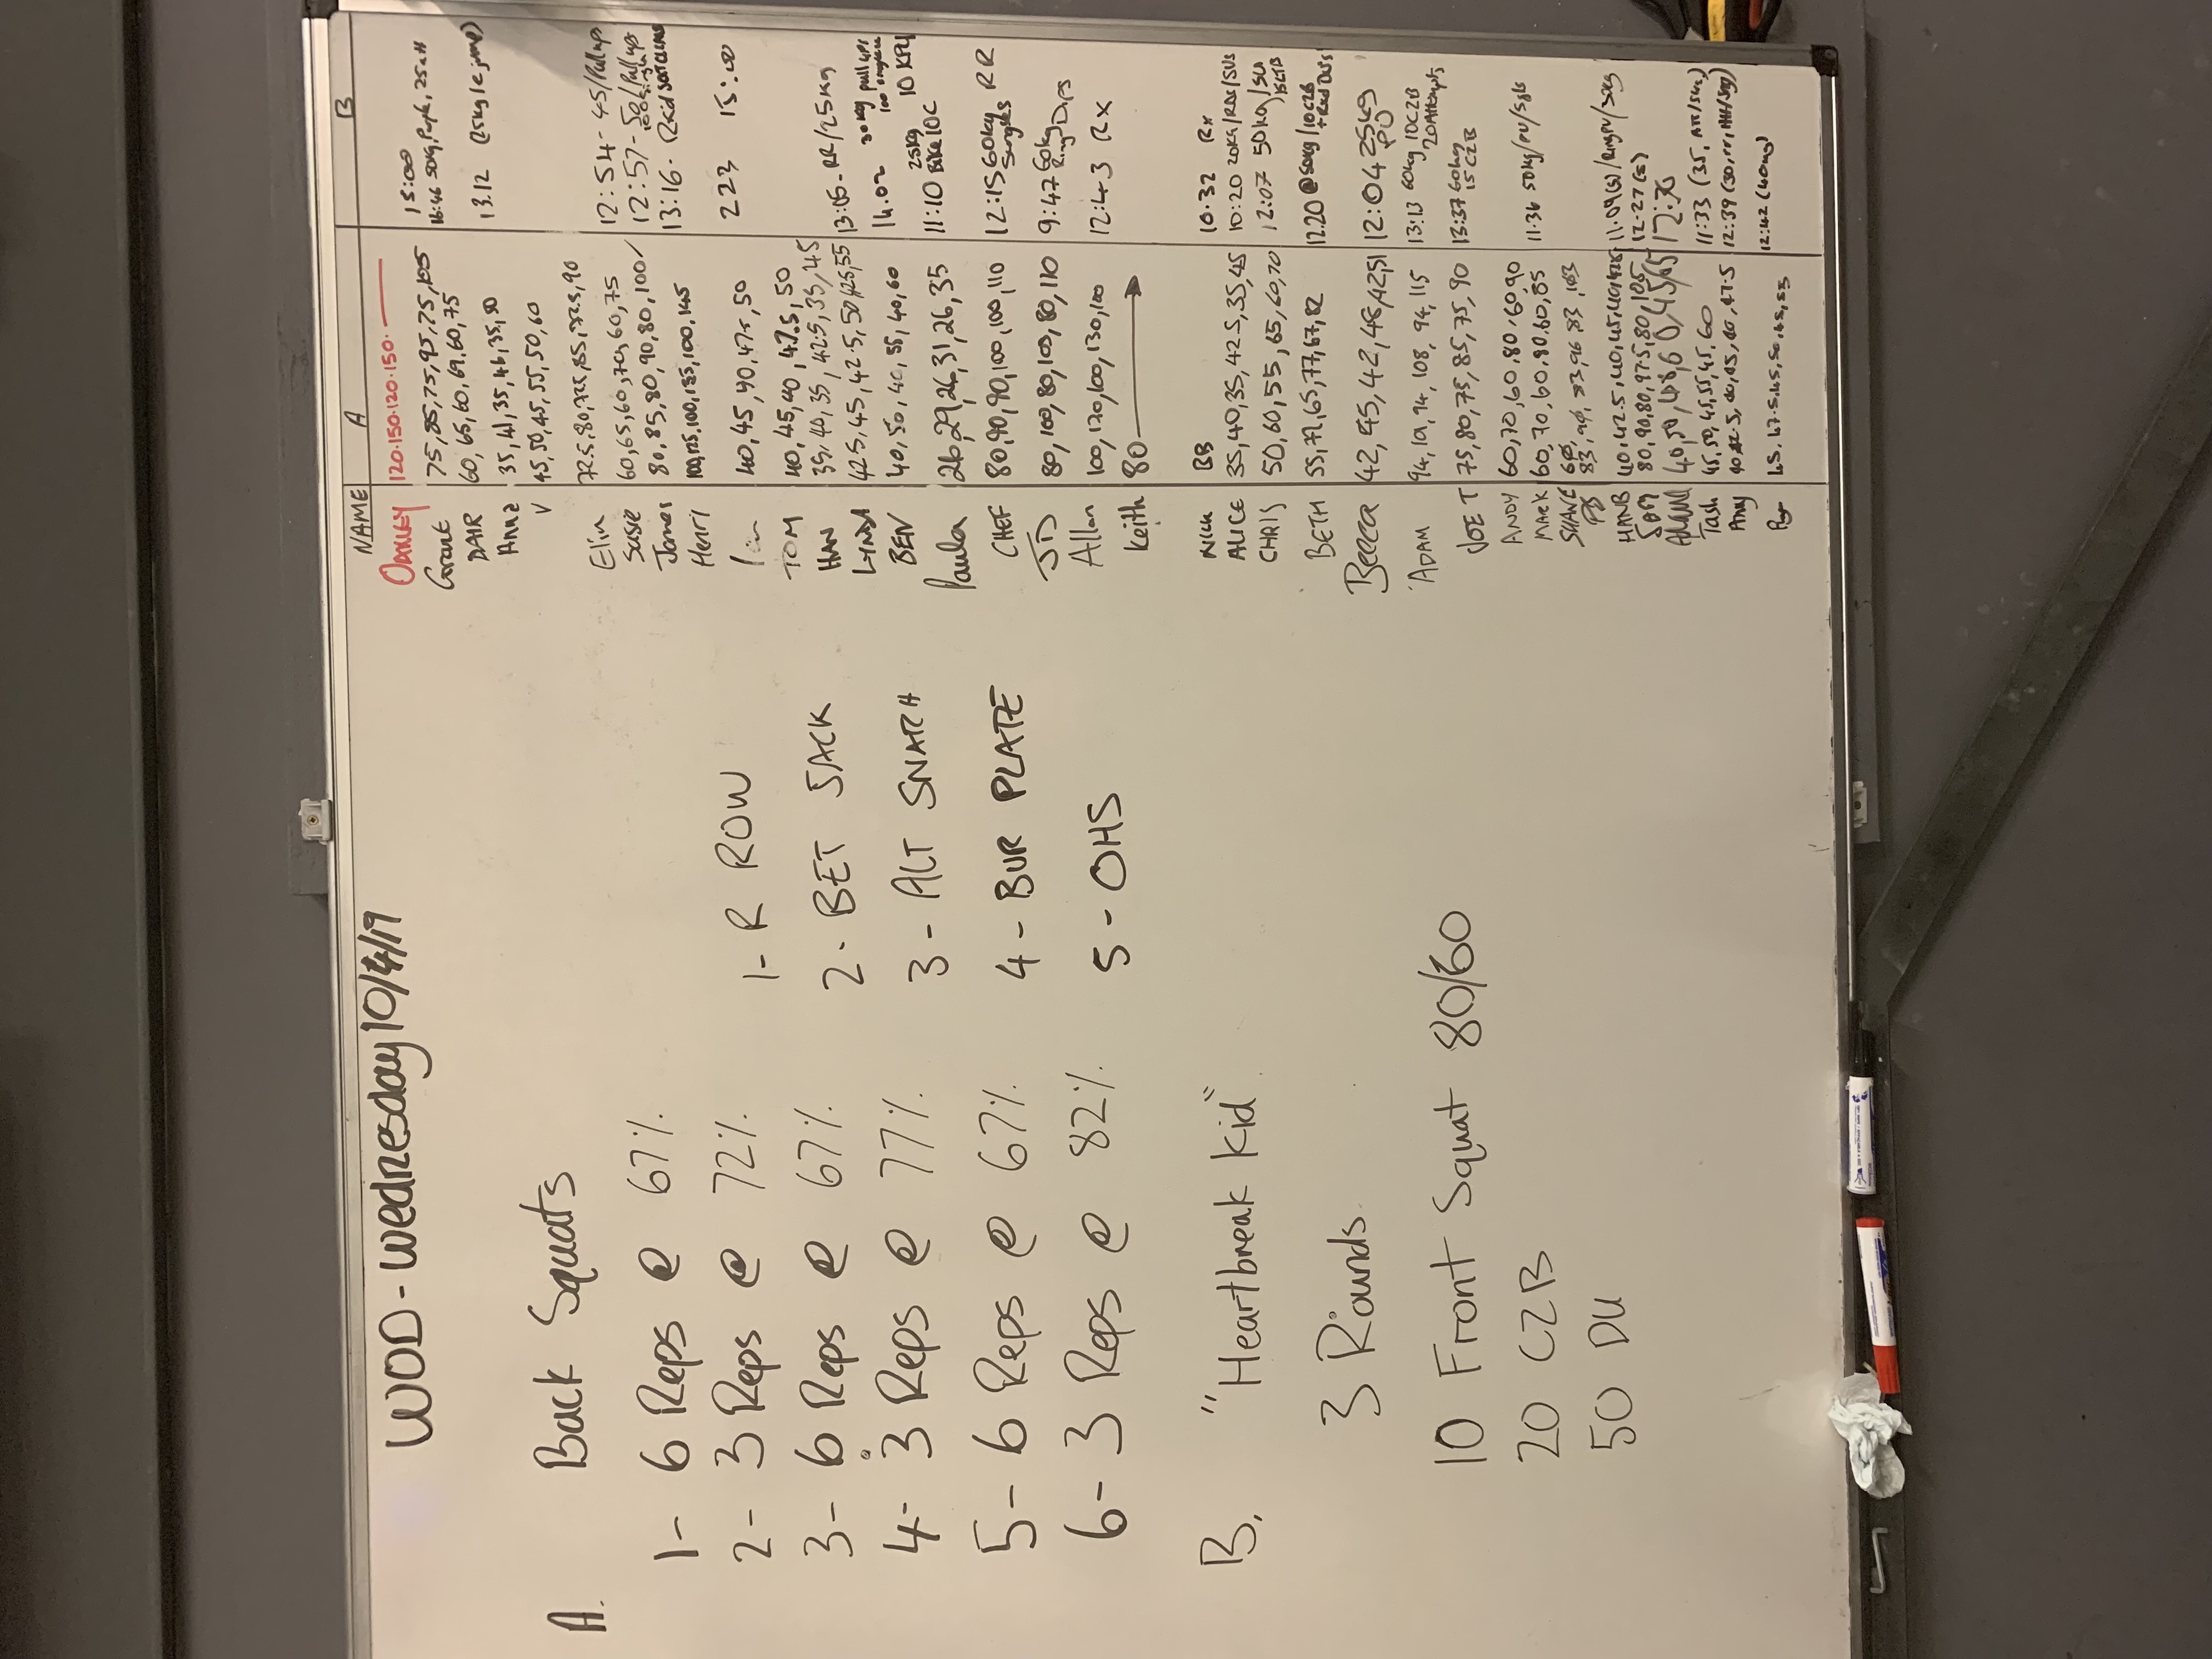 WOD - Wednesday 10/4/19
A. Back Squats
1- 6 Reps @ 67%
2- 3 Reps @ 72%
3- 6 Reps @ 67%
4- 3 Reps @ 77%
5- 6 Reps @ 67%
6- 3 Reps @ 82%
1- R ROW
2- BET SACK
3- ALT SNATCH
4- BUR PLATE
5- OHS
B. "Heartbreak Kid"
3 Rounds.
10 Front Squat 80/60
20 C2B
50 DU
NAME A B
120.150.120.150.
Grant 75,85,75,95,75,105 15:00
60,65,60,69,60,75
35,41,35,46,35,50 13.12
45,50,45,55,50,60
Elin 72.5,80,72.5,85,72.5,90
Susie 60,65,60,70,60,75 12:54 - 45/Pull ups
James 80,85,80,90,80,100 12:57
Henri 100,125,100,135,100,145 13:16
40,45,40,47.5,50 223 15:00
TOM 40,45,40,47.5,50
HAN 35,40,35,42.5,35,45 13:05 - RR/25kg
LYNDA 42.5,45,42.5,50,42.5,55 14.02 30kg pull ups
BEN 40,50,40,55,40,60 11:10 25kg Bike 10C
Paula 26,29,26,31,26,35
CHEF 80,90,90,100,100,110 12:15 60kg Singles RR
JD 80,100,80,100,80,110 9:47 60kg Ring Dips
Allan 100,120,100,130,100 12:43 Rx
Keith 80
Nick BB 10.32 Rx
ALICE 35,40,35,42.5,35,45 10:20 20KG/RDS/SUS
CHRIS 50,60,55,65,60,70 12:07 50kg
BETH 55,72,65,77,67,82 12.20 @ 50kg/10C2B
Becca 42,45,42,48,42,51 12:04 25kg PU
ADAM 94,101,94,108,94,115 13:13 60kg 10C2B 20 Attempts
JOE T 75,80,75,85,75,90 13:37 60kg 15 C2B
ANDY 60,70,60,80,60,90
MARK 60,70,60,80,60,85 11:36 50kg/PU/Sgls
SHANE 83,96,83,103
HANB 40,42.5,40,45,40,47.5 11.09
SAM 80,90,80,97.5,80,105 12:27 (s)
40,50,48,60,45,65
Tash 45,50,45,55,45,60 11:33
Amy 12:39
45,47.5,45,50,45,55 12:42 (40kg)